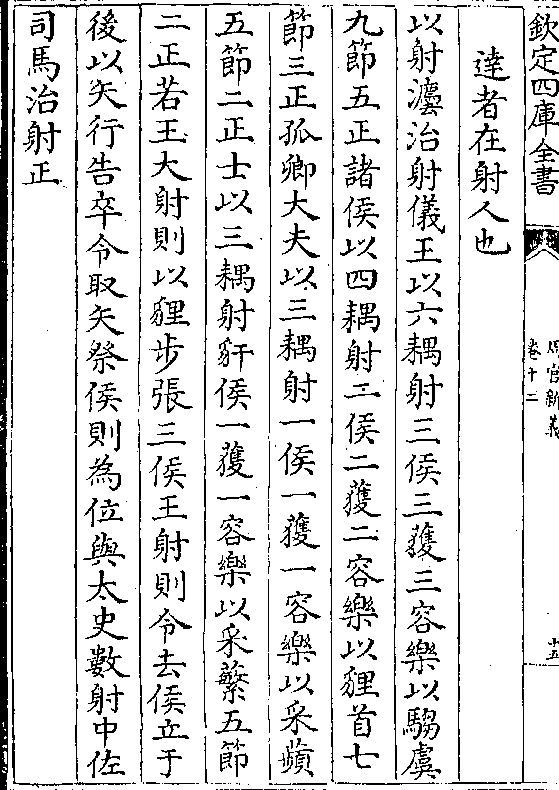 欽定四庫全書
周官新義
卷十二
十五
達者在射人也
以射灋治射儀王以六耦射三侯三獲三容樂以騶虞
九節五正諸侯以四耦射二侯二獲二容樂以貍首七
節三正孤卿大夫以三耦射一侯一獲一容樂以采蘋
五節二正士以三耦射豻侯一獲一容樂以采蘩五節
二正若王大射則以貍步張三侯王射則令去侯立于
後以矢行告卒令取矢祭侯則為位與太史數射中佐
司馬治射正